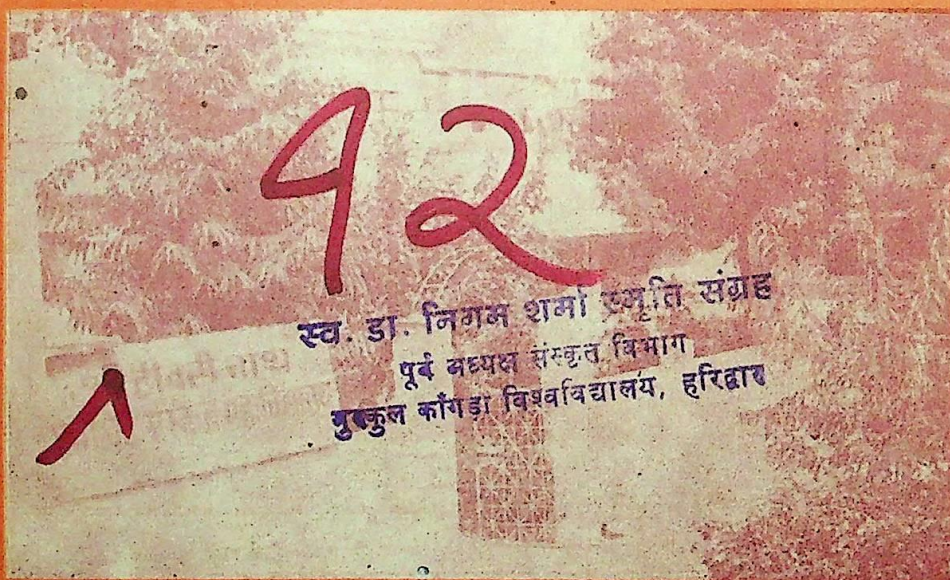 १२
स्व. डा. निगम शर्मा स्मृति संग्रह
पूर्व अध्यक्ष संस्कृत विभाग
गुरुकुल काँगडा विश्वविद्यालय, हरिद्वार